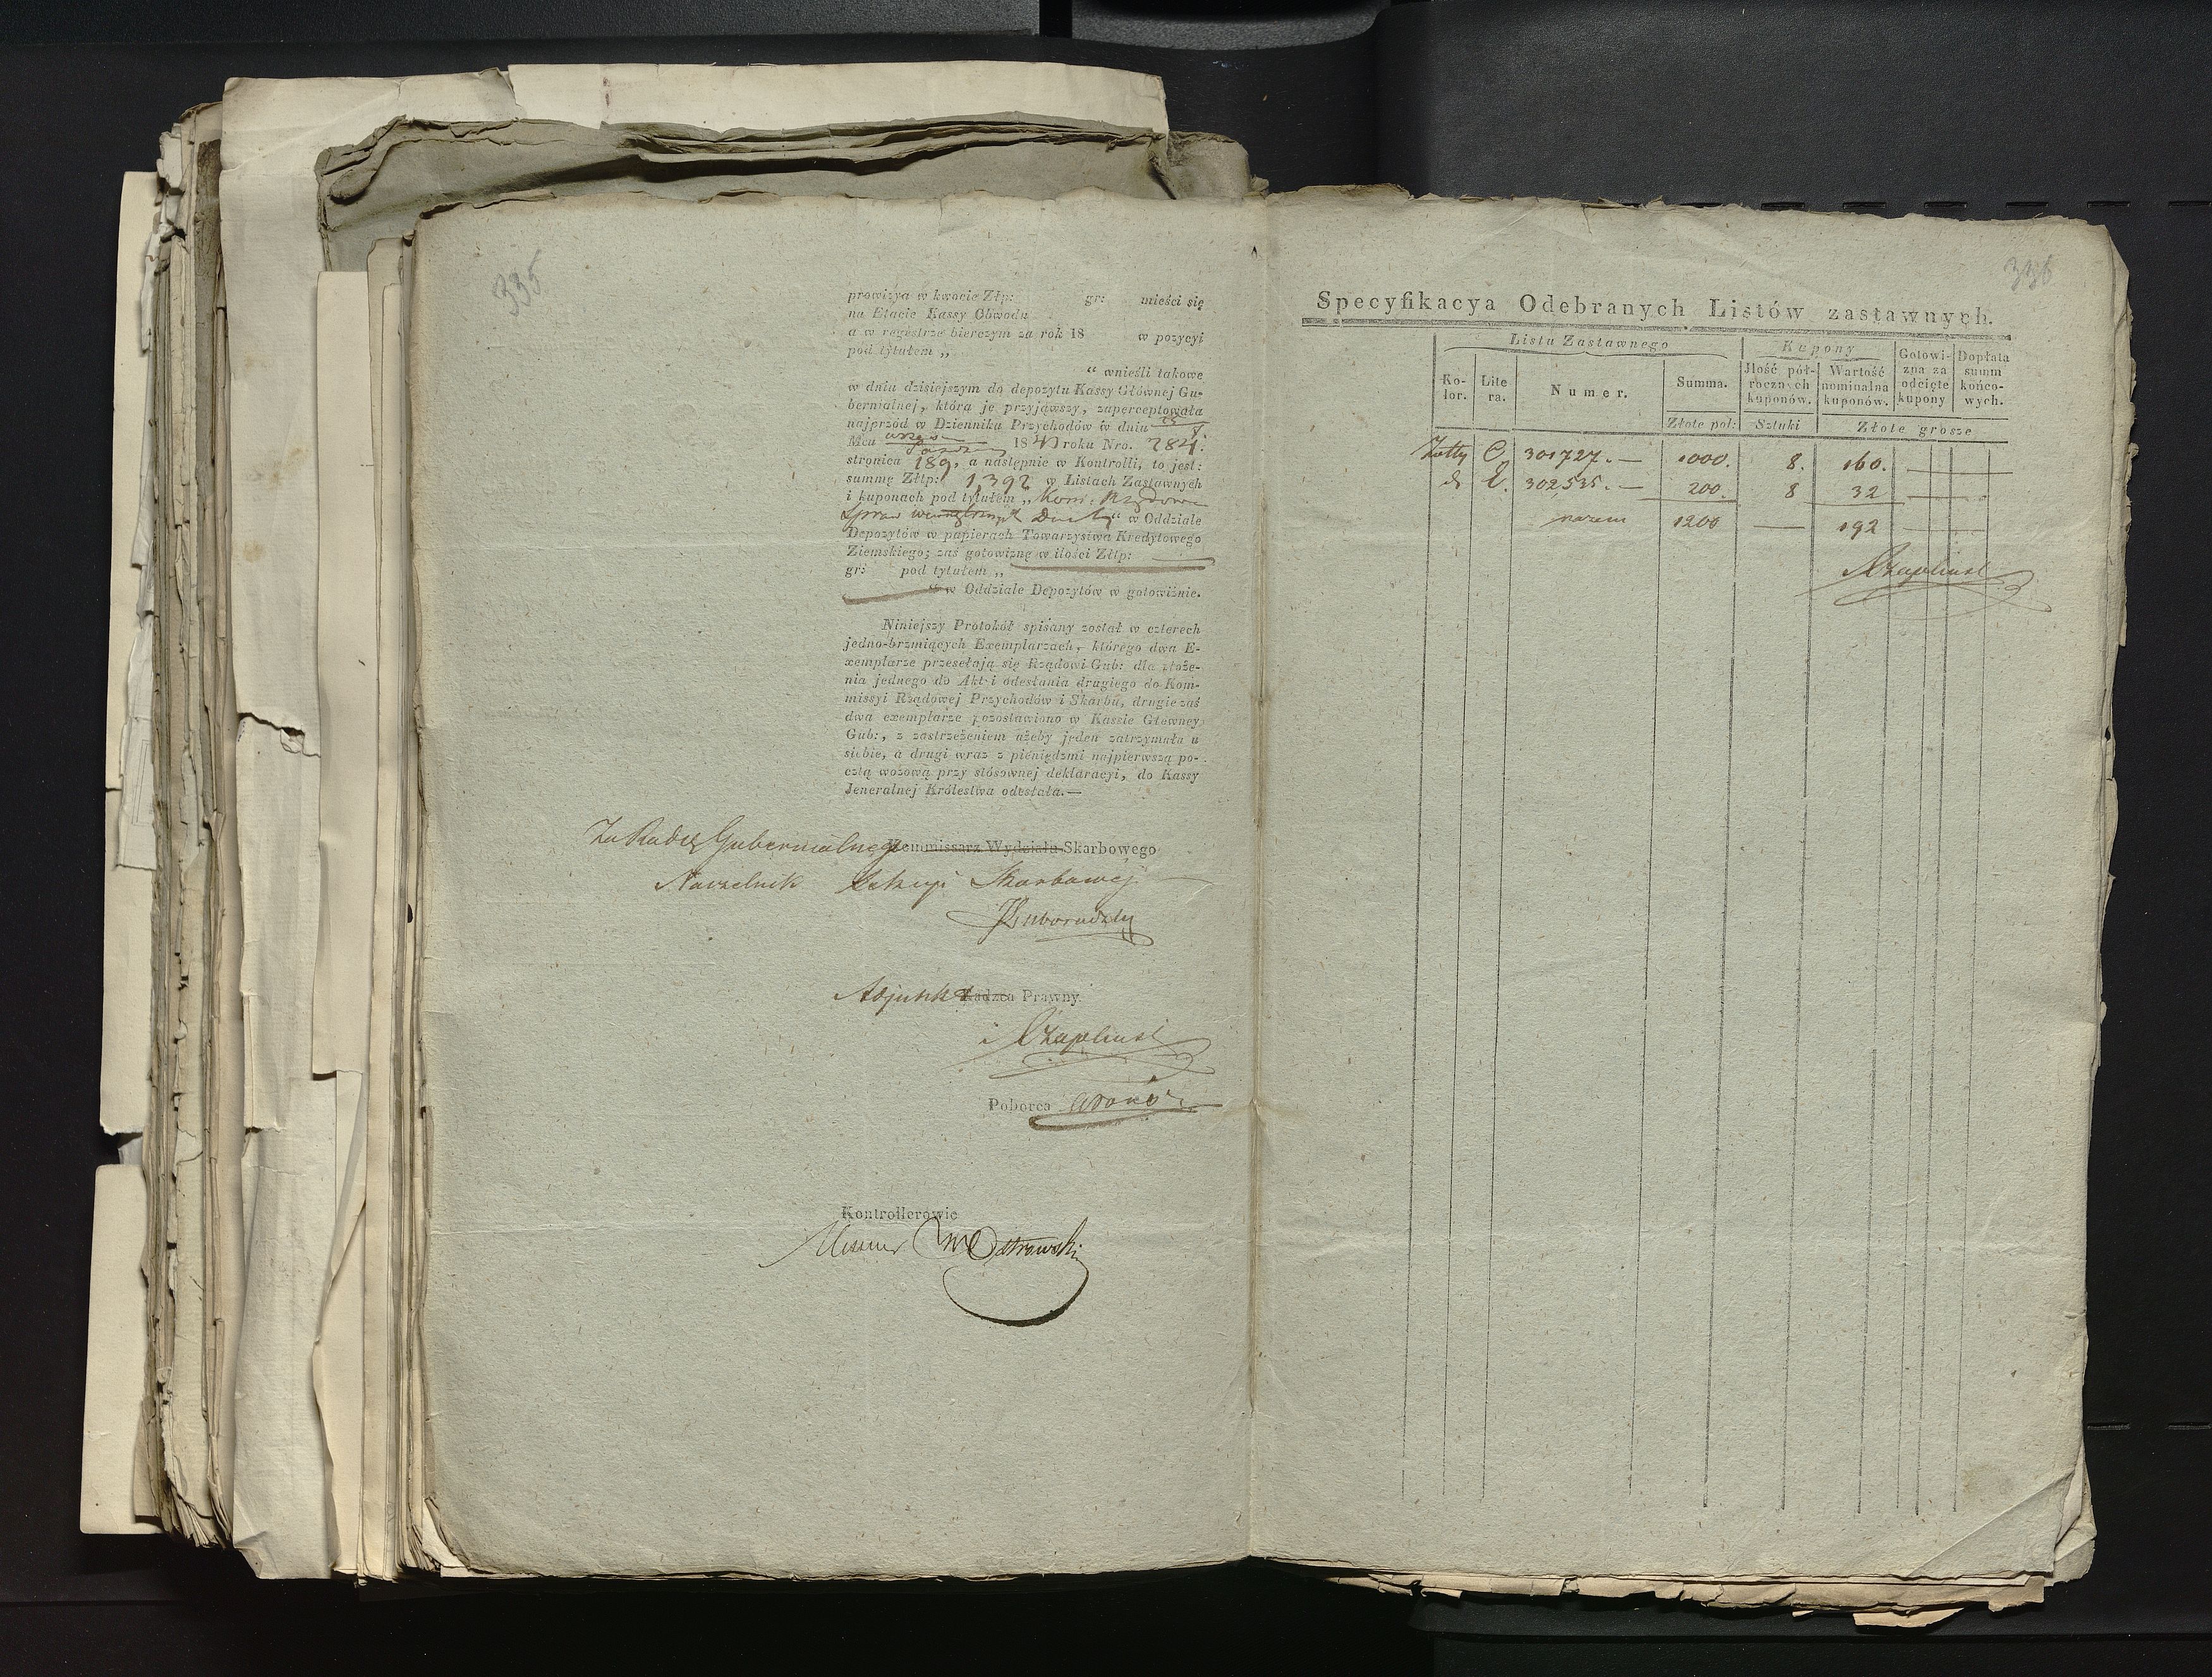 335
prowizya w kwocie Złp: gr: mieści się
na Etacie Kassy Obwodu
a w regestrze bierczym za rok 18 w pozycyi
pod tytułem „
“ wnieśli takowe
w dniu dzisiejszym do depozytu Kassy Głównej Gu-
bernialnej, która je przyjąwszy, zaperceptowała
najprzód w Dzienniku Przychodów w dniu
Mca 18 roku Nro. 284.
stronica 189, a następnie w Kontrolli, to jest:
summę Złtp: 1,392 w Listach Zastawnych
i kuponach pod tytułem „ Kom: Rządowa
Spraw wewnętrznych Duch: “ w Oddziale
Depozytów w papierach Towarzystwa Kredytowego
Ziemskiego; zaś gotowiznę w ilości Złtp:
gr: pod tytułem „
“ w Oddziale Depozytów w gotowiźnie.
Niniejszy Protokół spisany został w czterech
jedno-brzmiących Exemplarzach, którego dwa E-
xemplarze przesełają się Rządowi Gub: dla złoże-
nia jednego do Akt i odesłania drugiego do Kom-
missyi Rządowej Przychodów i Skarbu, drugie zaś
dwa exemplarze pozostawiono w Kassie Głowney
Gub:, z zastrzeżeniem ażeby jeden zatrzymała u
siebie, a drugi wraz z pieniędzmi najpierwszą po-
cztą wozową przy stósownej deklaracyi, do Kassy
Jeneralnej Królestwa odesłała.—
Za Radcę Gubernialnego Kommissarz Wydziału Skarbowego
Naczelnik Sekcyi Skarbowéj
Adjunkt Radzca Prawny
Czapliński
Poborca
Kontrollerowie
Ostrowski
336
Specyfikacya Odebranych Listów zastawnych.
Listu Zastawnego Kupony Gotowizna za odcięte kupony Dopłata summ końcowych.
Kolor. Litera. Numer. Summa. Jlość półrocznych kuponów. Wartość nominalna kuponów.
Złote pol: Sztuki Złote grosze
Żółty C. 301727.— 1000. 8. 160.
dt 302,535.— 200. 8 32
razem 1200 — 192
Czapliński